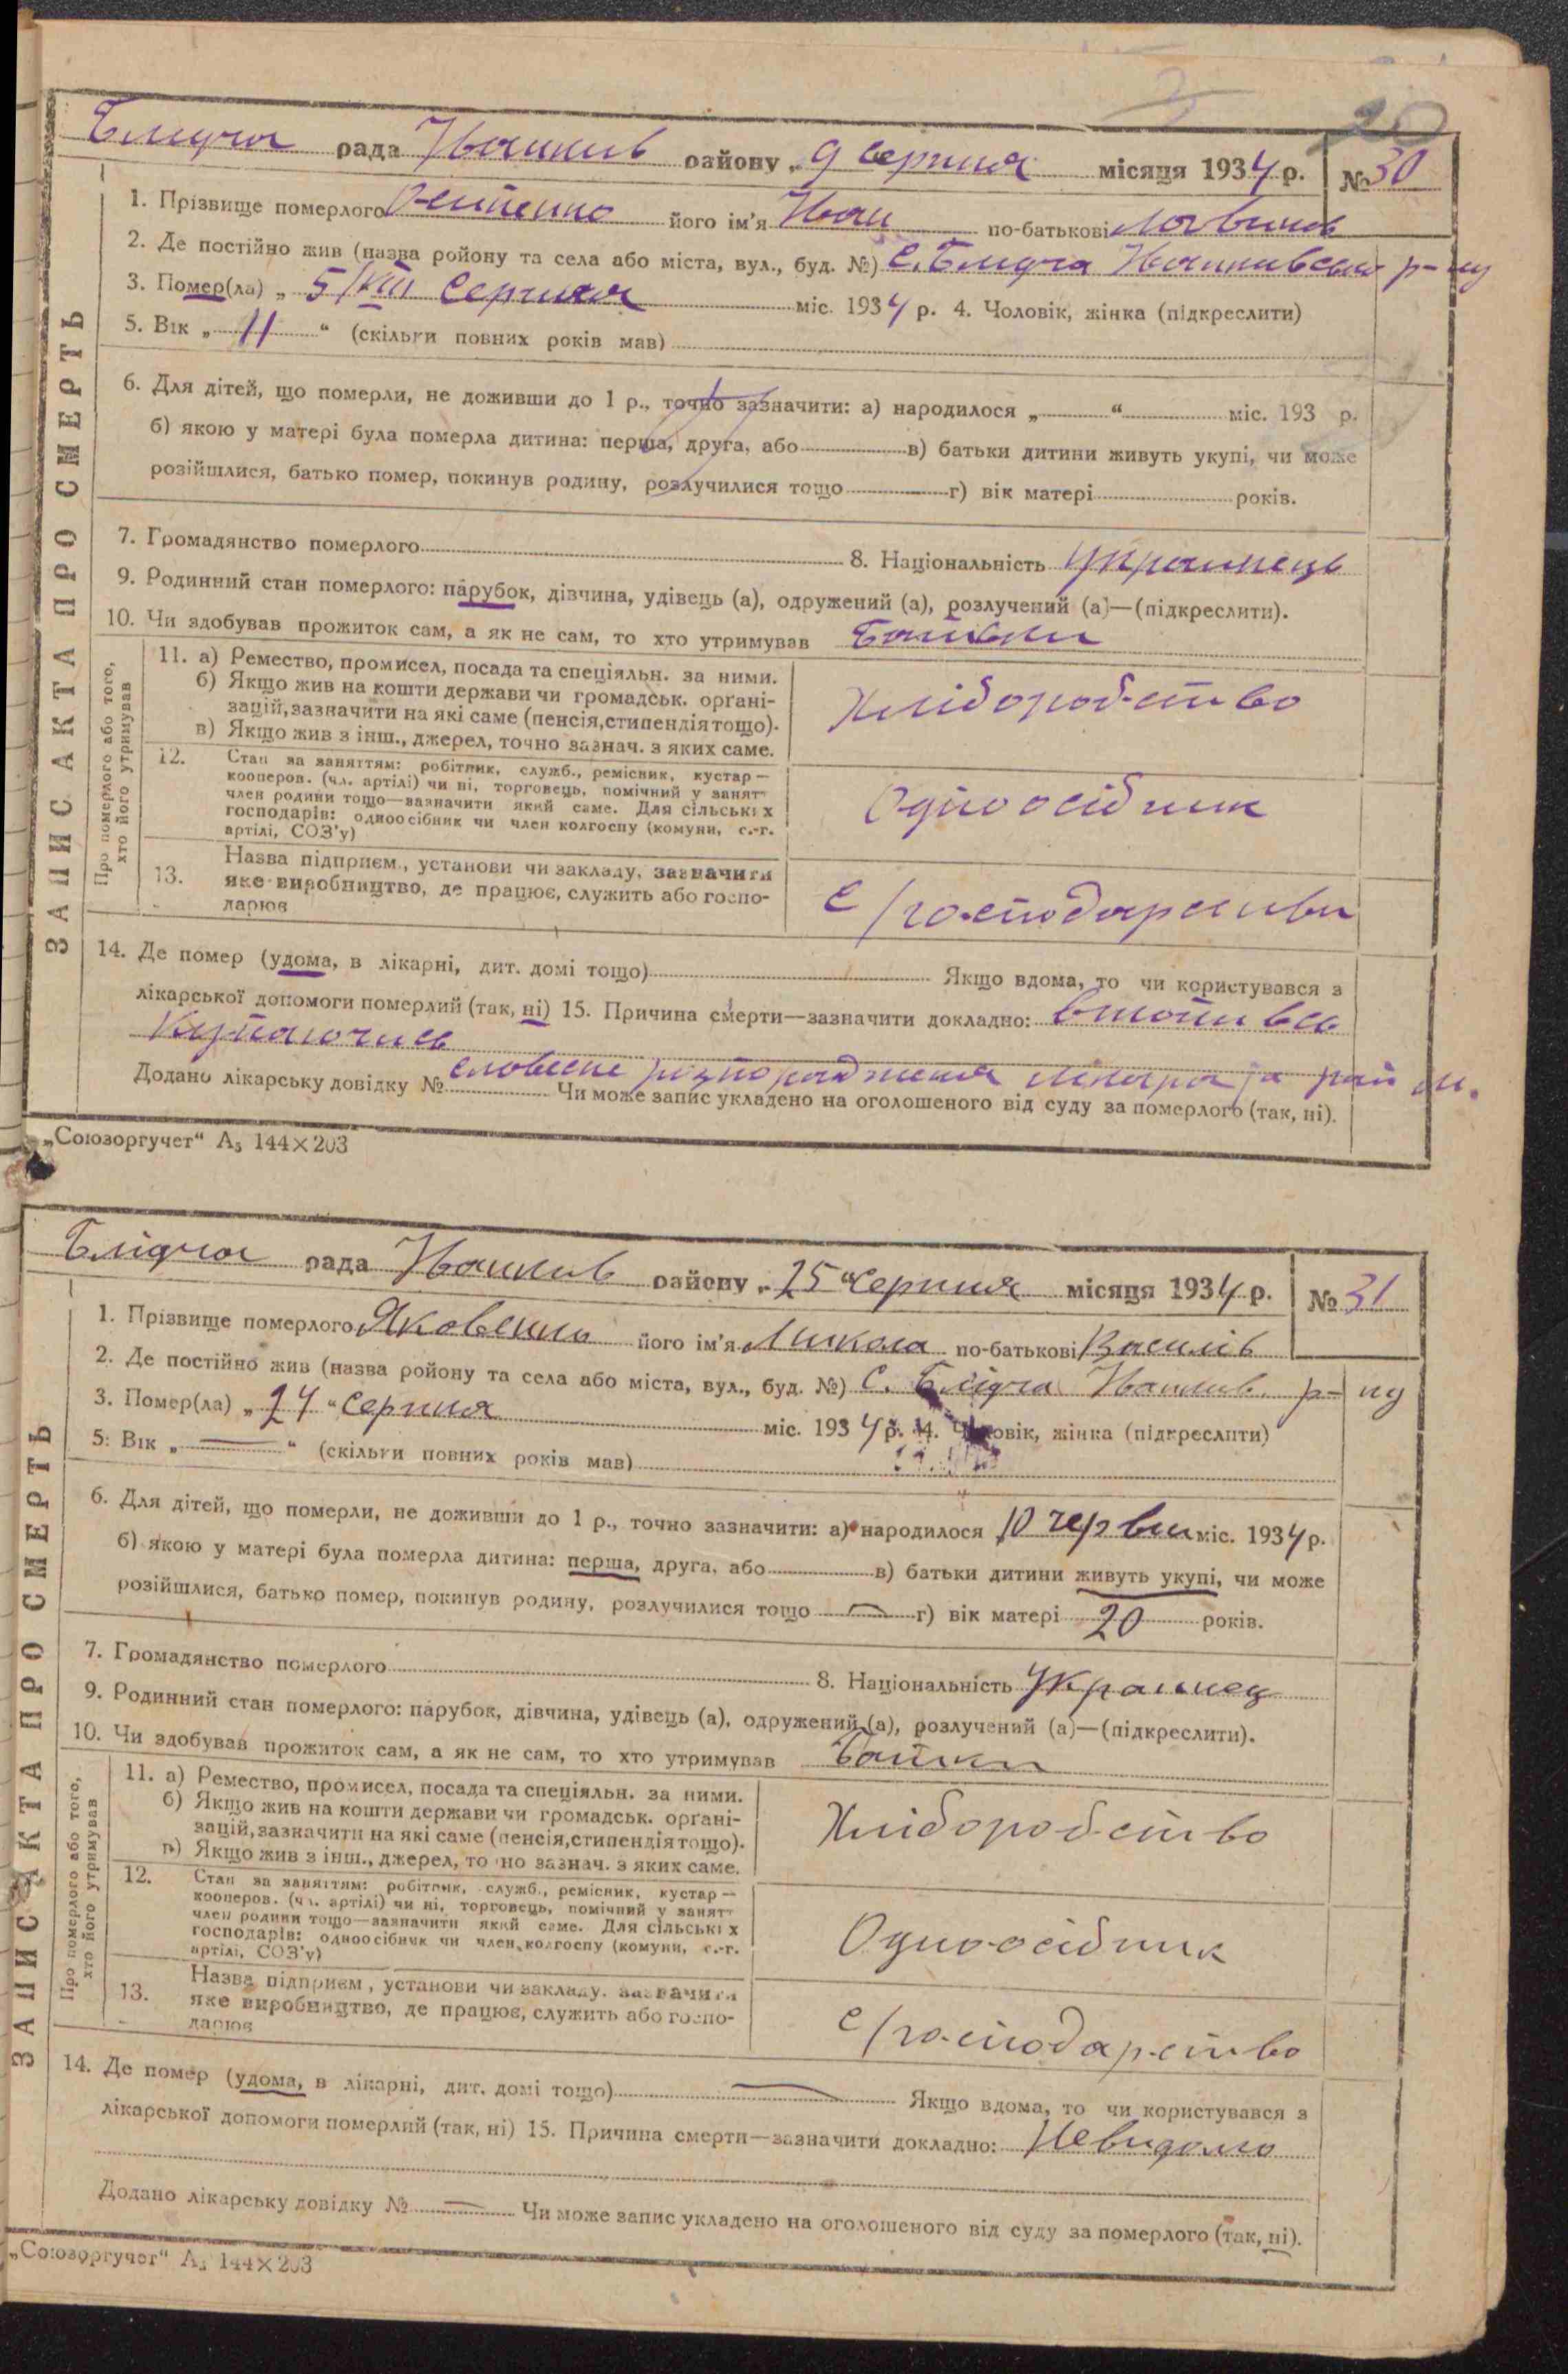 20
Блидча рада Іванків району „ 9 серпня місяця 1934 р. № 30
1. Прізвище померлого його ім'я Іван по-батькові Логвинов
2. Де постійно жив (назва ройону та села або міста, вул., буд. №) С. Блидча Іванківсько р-ну
3. Помер(ла) „ 5/VIII Серпня міс. 1934 р. 4. Чоловік, жінка (підкреслити)
5. Вік „ 11 “ (скільки повних років мав)
6. Для дітей, що померли, не доживши до 1 р., точно зазначити: а) народилося „ “ міс. 193 р.
б) якою у матері була померла дитина: перша, друга, або в) батьки дитини живуть укупі, чи може
розійшлися, батько помер, покинув родину, розлучилися тощо г) вік матері років.
7. Громадянство померлого 8. Національність українець
9. Родинний стан померлого: парубок, дівчина, удівець (а), одружений (а), розлучений (а)—(підкреслити).
10. Чи здобував прожиток сам, а як не сам, то хто утримував Батьки
ЗАПИС АКТА ПРО СМЕРТЬ
Про померлого або того,
хто його утримував
11. а) Ремество, промисел, посада та спеціяльн. за ними.
б) Якщо жив на кошти держави чи громадськ. орґані-
зацій, зазначити на які саме (пенсія, стипендія тощо).
в) Якщо жив з інш., джерел, точно зазнач. з яких саме.
Хліборобство
12. Стан за заняттям: робітник, служб., ремісник, кустар—
кооперов. (чл. артілі) чи ні, торговець, помічний у занят-
член родини тощо—зазначити який саме. Для сільських
господарів: одноосібник чи член колгоспу (комуни, с.-г.
артілі, СОЗ'у)
Одноосібник
13. Назва підприєм., установи чи закладу, зазначити
яке виробництво, де працює, служить або госпо-
дарює
С/господарстви
14. Де помер (удома, в лікарні, дит. домі тощо) Якщо вдома, то чи користувався з
лікарської допомоги померлий (так, ні) 15. Причина смерти—зазначити докладно: втопивсь
купаючись
Додано лікарську довідку № словесне розпорадження лікаря
Чи може запис укладено на оголошеного від суду за померлого (так, ні).
„Союзоргучет“ А₅ 144×203
Блідча рада Іванків району „ 25 “ серпня місяця 1934 р. № 31
1. Прізвище померлого Яковенко його ім'я Микола по-батькові Василів
2. Де постійно жив (назва ройону та села або міста, вул., буд. №) С. Блідча Іванків. р-ну
3. Помер(ла) „ 24 “ Серпня міс. 1934 р. 4. Чоловік, жінка (підкреслити)
5. Вік „ — “ (скільки повних років мав)
6. Для дітей, що померли, не доживши до 1 р., точно зазначити: а) народилося 10 червн міс. 1934 р.
б) якою у матері була померла дитина: перша, друга, або в) батьки дитини живуть укупі, чи може
розійшлися, батько помер, покинув родину, розлучилися тощо — г) вік матері 20 років.
7. Громадянство померлого 8. Національність українец
9. Родинний стан померлого: парубок, дівчина, удівець (а), одружений (а), розлучений (а)—(підкреслити).
10. Чи здобував прожиток сам, а як не сам, то хто утримував Батьки
ЗАПИС АКТА ПРО СМЕРТЬ
Про померлого або того,
хто його утримував
11. а) Ремество, промисел, посада та спеціяльн. за ними.
б) Якщо жив на кошти держави чи громадськ. орґані-
зацій, зазначити на які саме (пенсія, стипендія тощо).
в) Якщо жив з інш., джерел, точно зазнач. з яких саме.
Хліборобство
12. Стан за заняттям: робітник, служб., ремісник, кустар—
кооперов. (чл. артілі) чи ні, торговець, помічний у занят-
член родини тощо—зазначити який саме. Для сільських
господарів: одноосібник чи член колгоспу (комуни, с.-г.
артілі, СОЗ'у)
Одноосібник
13. Назва підприєм., установи чи закладу. зазначити
яке виробництво, де працює, служить або госпо-
дарює
С/господарство
14. Де помер (удома, в лікарні, дит. домі тощо) — Якщо вдома, то чи користувався з
лікарської допомоги померлий (так, ні) 15. Причина смерти—зазначити докладно: Невидомо
Додано лікарську довідку № — Чи може запис укладено на оголошеного від суду за померлого (так, ні).
„Союзоргучет“ А₅ 144×203